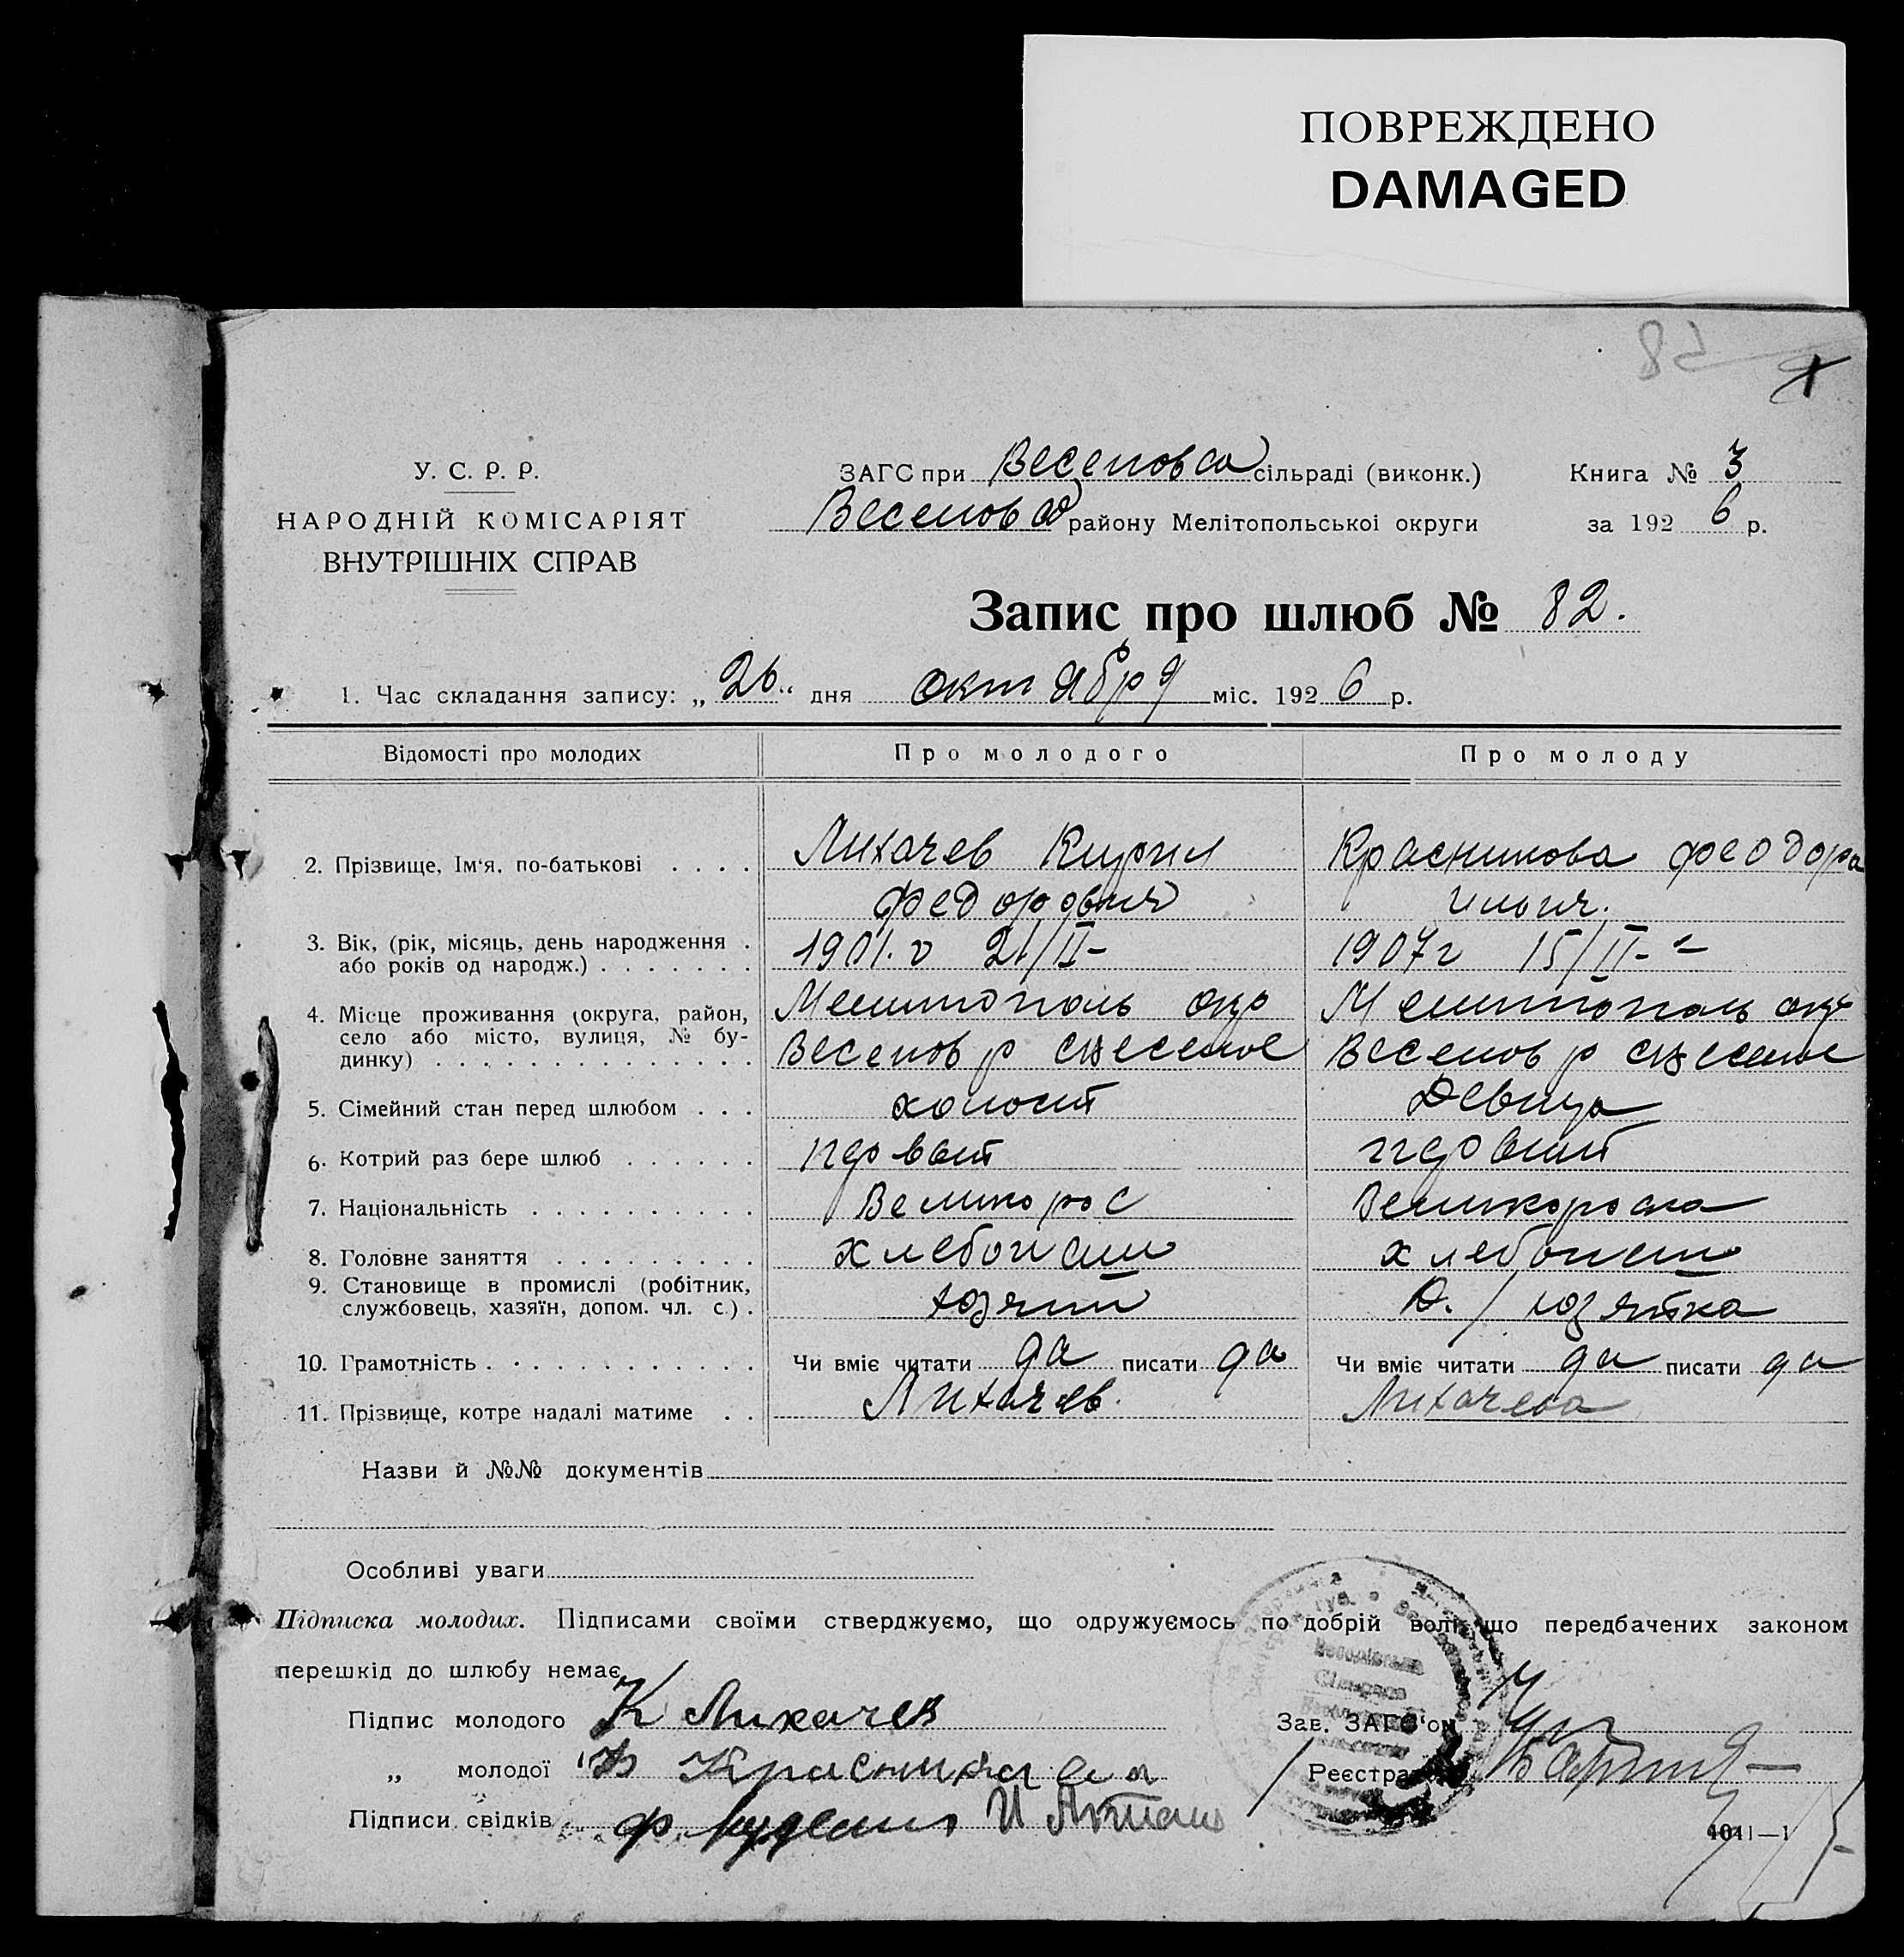 ПОВРЕЖДЕНО
DAMAGED
82
У. С. Р. Р.
НАРОДНІЙ КОМІСАРІЯТ
ВНУТРІШНІХ СПРАВ
ЗАГС при Веселов сільраді (виконк.)
Веселов району Мелітопольської округи
Книга № 3
за 1926 р.
Запис про шлюб № 82.
1. Час складання запису: „26“ дня октября міс. 1926 р.
Відомості про молодих
Про молодого
Про молоду
2. Прізвище, Ім'я, по-батькові . . . .
Лихачев Кирил
Федорович
Красникова Феодора
Ильич.
3. Вік, (рік, місяць, день народження .
або років од народж.) . . . . . . .
1901.г 21/II-
1907г 15/II-
4. Місце проживання (округа, район,
село або місто, вулиця, № бу-
динку) . . . . . . . . . . . . . .
Мелитополь окр
Веселов р с Веселое
Мелитополь окр
Веселов р с Веселое
5. Сімейний стан перед шлюбом . . .
холост
Девица
6. Котрий раз бере шлюб . . . . . .
первый
первый
7. Національність . . . . . . . . . .
Великорос
Великороска
8. Головне заняття . . . . . . . . .
хлебопаш
хлебопаш
9. Становище в промислі (робітник,
службовець, хазяїн, допом. чл. с.) .
хозяин
Д. / хозяйка
10. Грамотність . . . . . . . . . . . .
Чи вміє читати да писати да
Чи вміє читати да писати да
11. Прізвище, котре надалі матиме . .
Лихачев.
Лихачева
Назви й №№ документів
Особливі уваги
Підписка молодих. Підписами своїми стверджуємо, що одружуємось по добрій волі, що передбачених законом
перешкід до шлюбу немає
Підпис молодого К Лихачев
Зав. ЗАГС'ом
„ молодої Красникова
Реєстра
Підписи свідків Ф.
4041—1